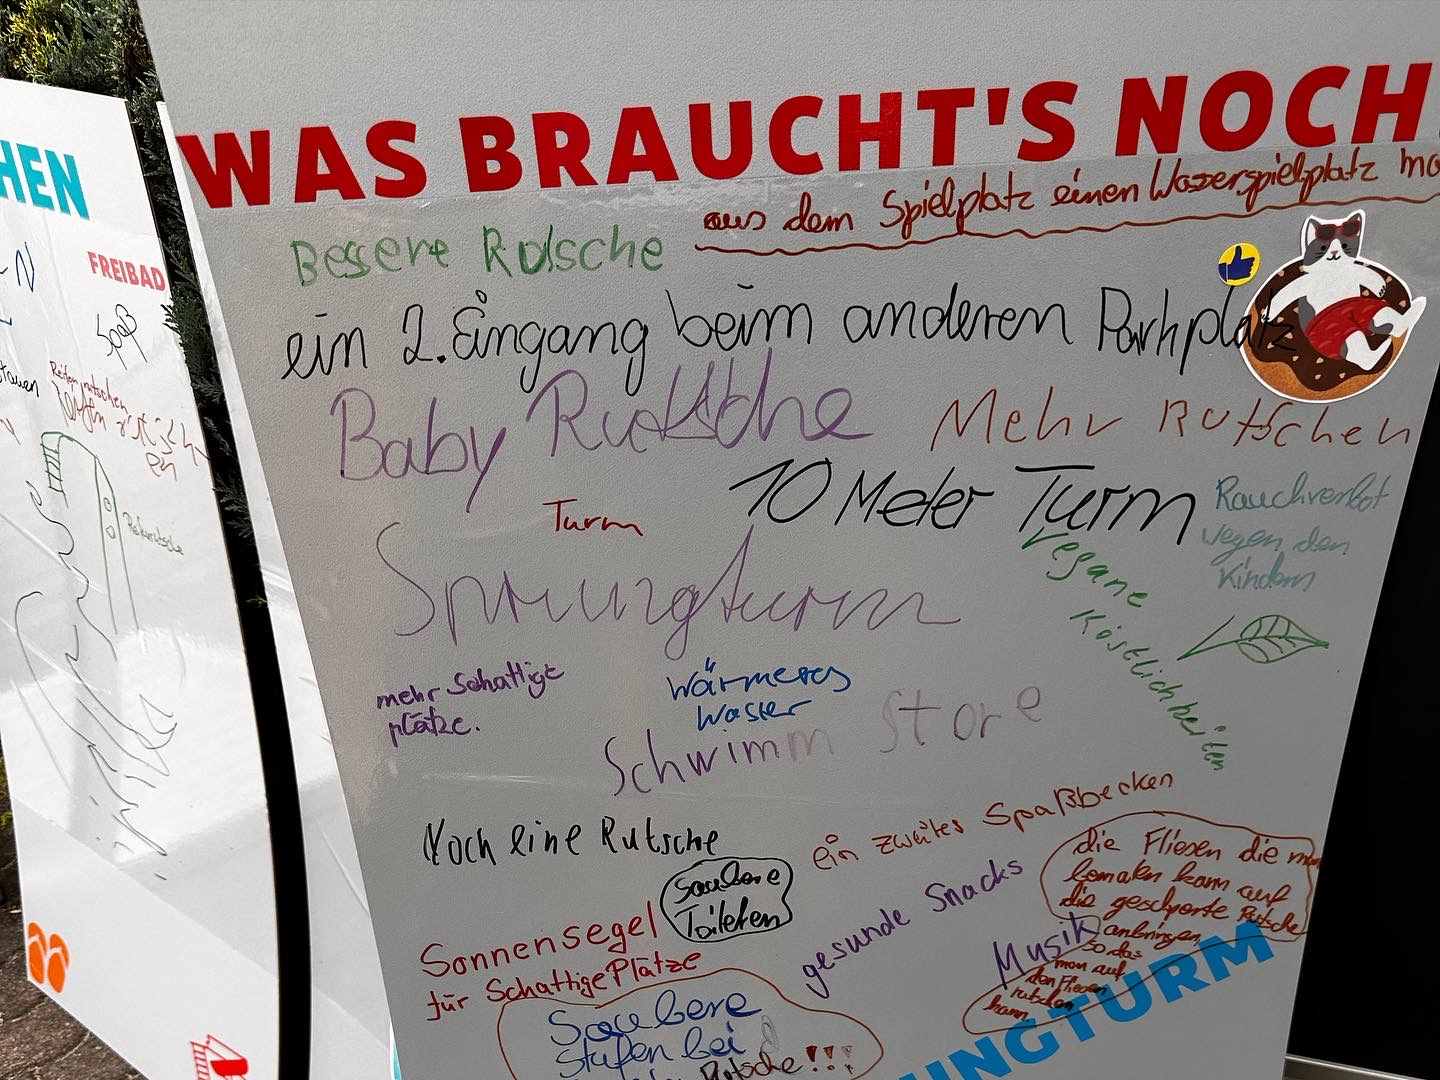 WAS BRAUCHT'S NOCH
aus dem Spielplatz einen Wasserspielplatz
Bessere Rutsche
ein 2. Eingang beim anderen Parkplatz
Baby Rutsche
Mehr Rutschen
10 Meter Turm
Turm
Rauchverbot
wegen den
Kindern
Sprungturm
Vegane
Köstlichkeiten
mehr Schattige
plätze.
wärmeres
Wasser
Schwimm Store
Noch eine Rutsche
ein zweites Spaßbecken
Saubere
Toileten
die Fliesen die man
bemalen kann auf
die gesperte Rutsche
anbringen
so das
man auf
den Fliesen
rutschen
kann
gesunde Snacks
Musik
Sonnensegel
für Schattige Plätze
Saubere
stufen bei
Rutsche!!!
UNGTURM
HEN
FREIBAD
Spaß
Reifenrutschen